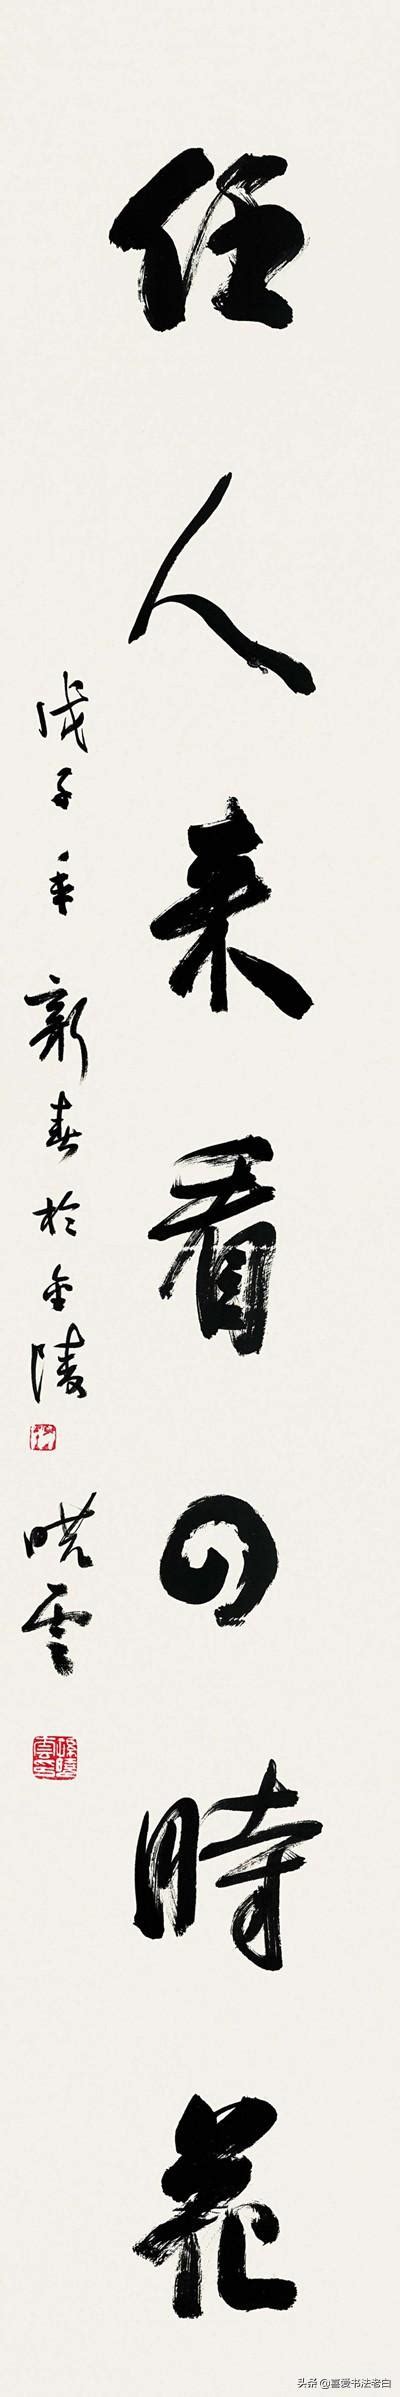 任人来看四時花
戊子年新春於金陵
晓雲
孫曉雲印
头条 @喜爱书法老白